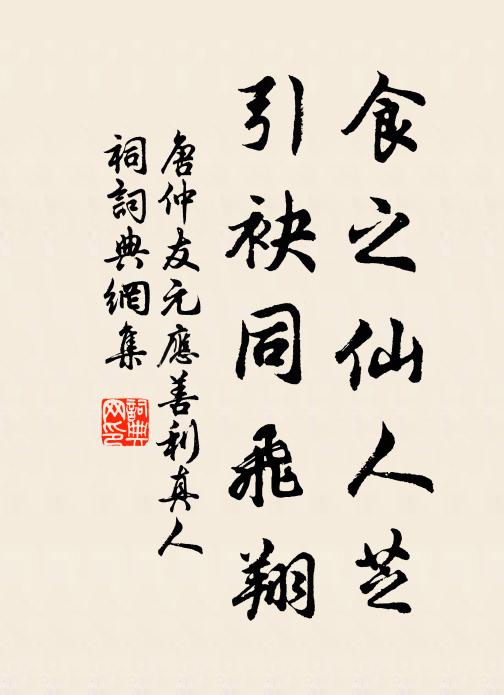 食之仙人芝
引袂同飛翔
唐仲友元應善利真人
祠詞典網集
詞典
网印